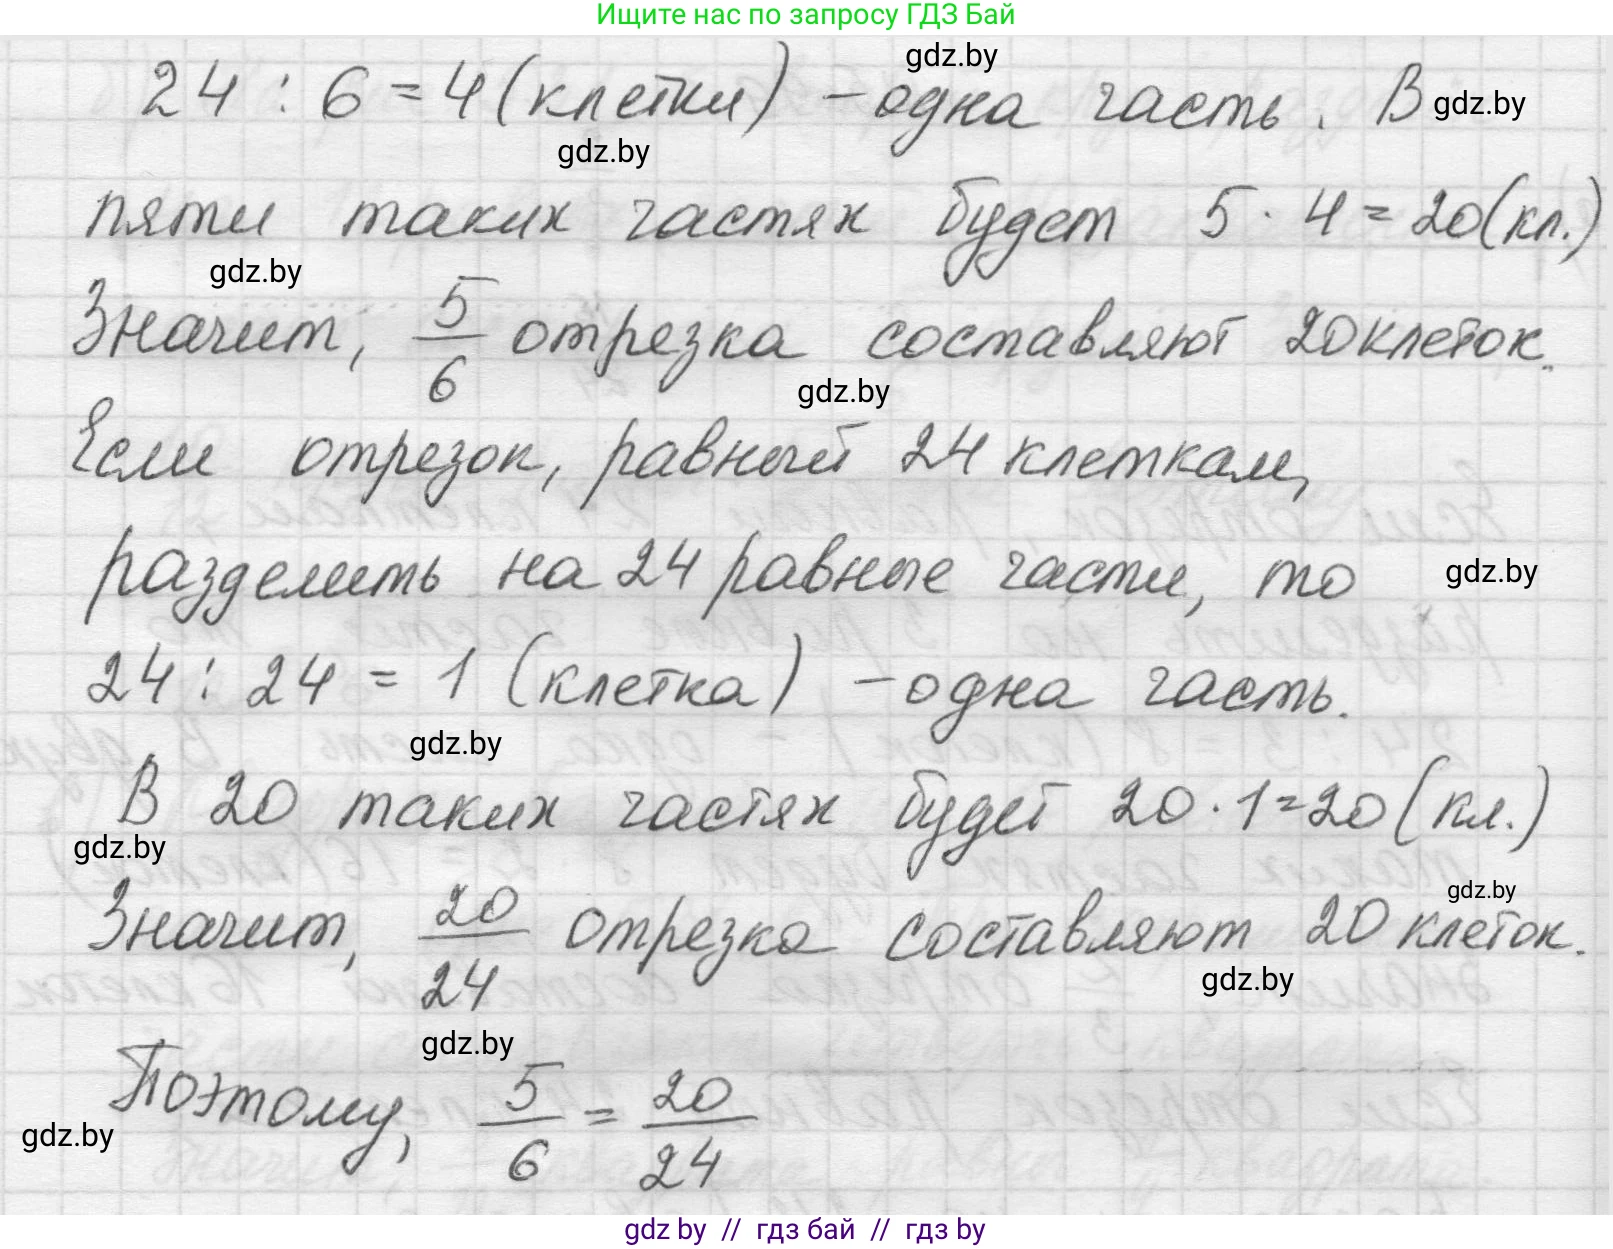 Ищите нас по запросу ГДЗ Бай
gdz.by
24 : 6 = 4 (клетки) – одна часть. В
gdz.by
gdz.by
пяти таких частях будет 5 · 4 = 20 (кл.)
gdz.by
Значит, 5/6 отрезка составляют 20 клеток.
gdz.by
Если отрезок, равный 24 клеткам,
разделить на 24 равные части, то
gdz.by
24 : 24 = 1 (клетка) – одна часть.
gdz.by
В 20 таких частях будет 20 · 1 = 20 (кл.)
gdz.by
gdz.by
Значит, 20/24 отрезка составляют 20 клеток.
gdz.by
gdz.by
Поэтому, 5/6 = 20/24
gdz.by
gdz by // гдз бай // гдз by